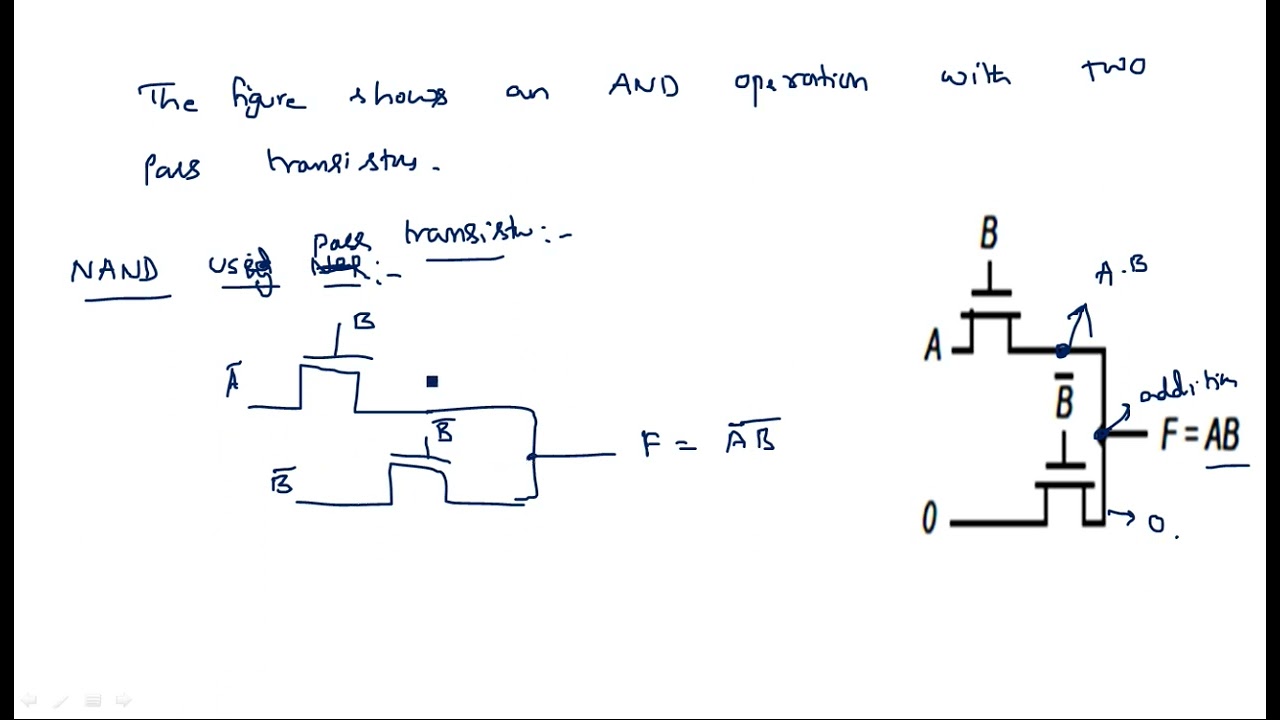 The figure shows an AND operation with two
pass transistors.
NAND using pass transistor:-
:-
B
A̅
B̅
B̅
F = A̅B̅
B
A·B
A
B̅
addition
F = AB
0
0.